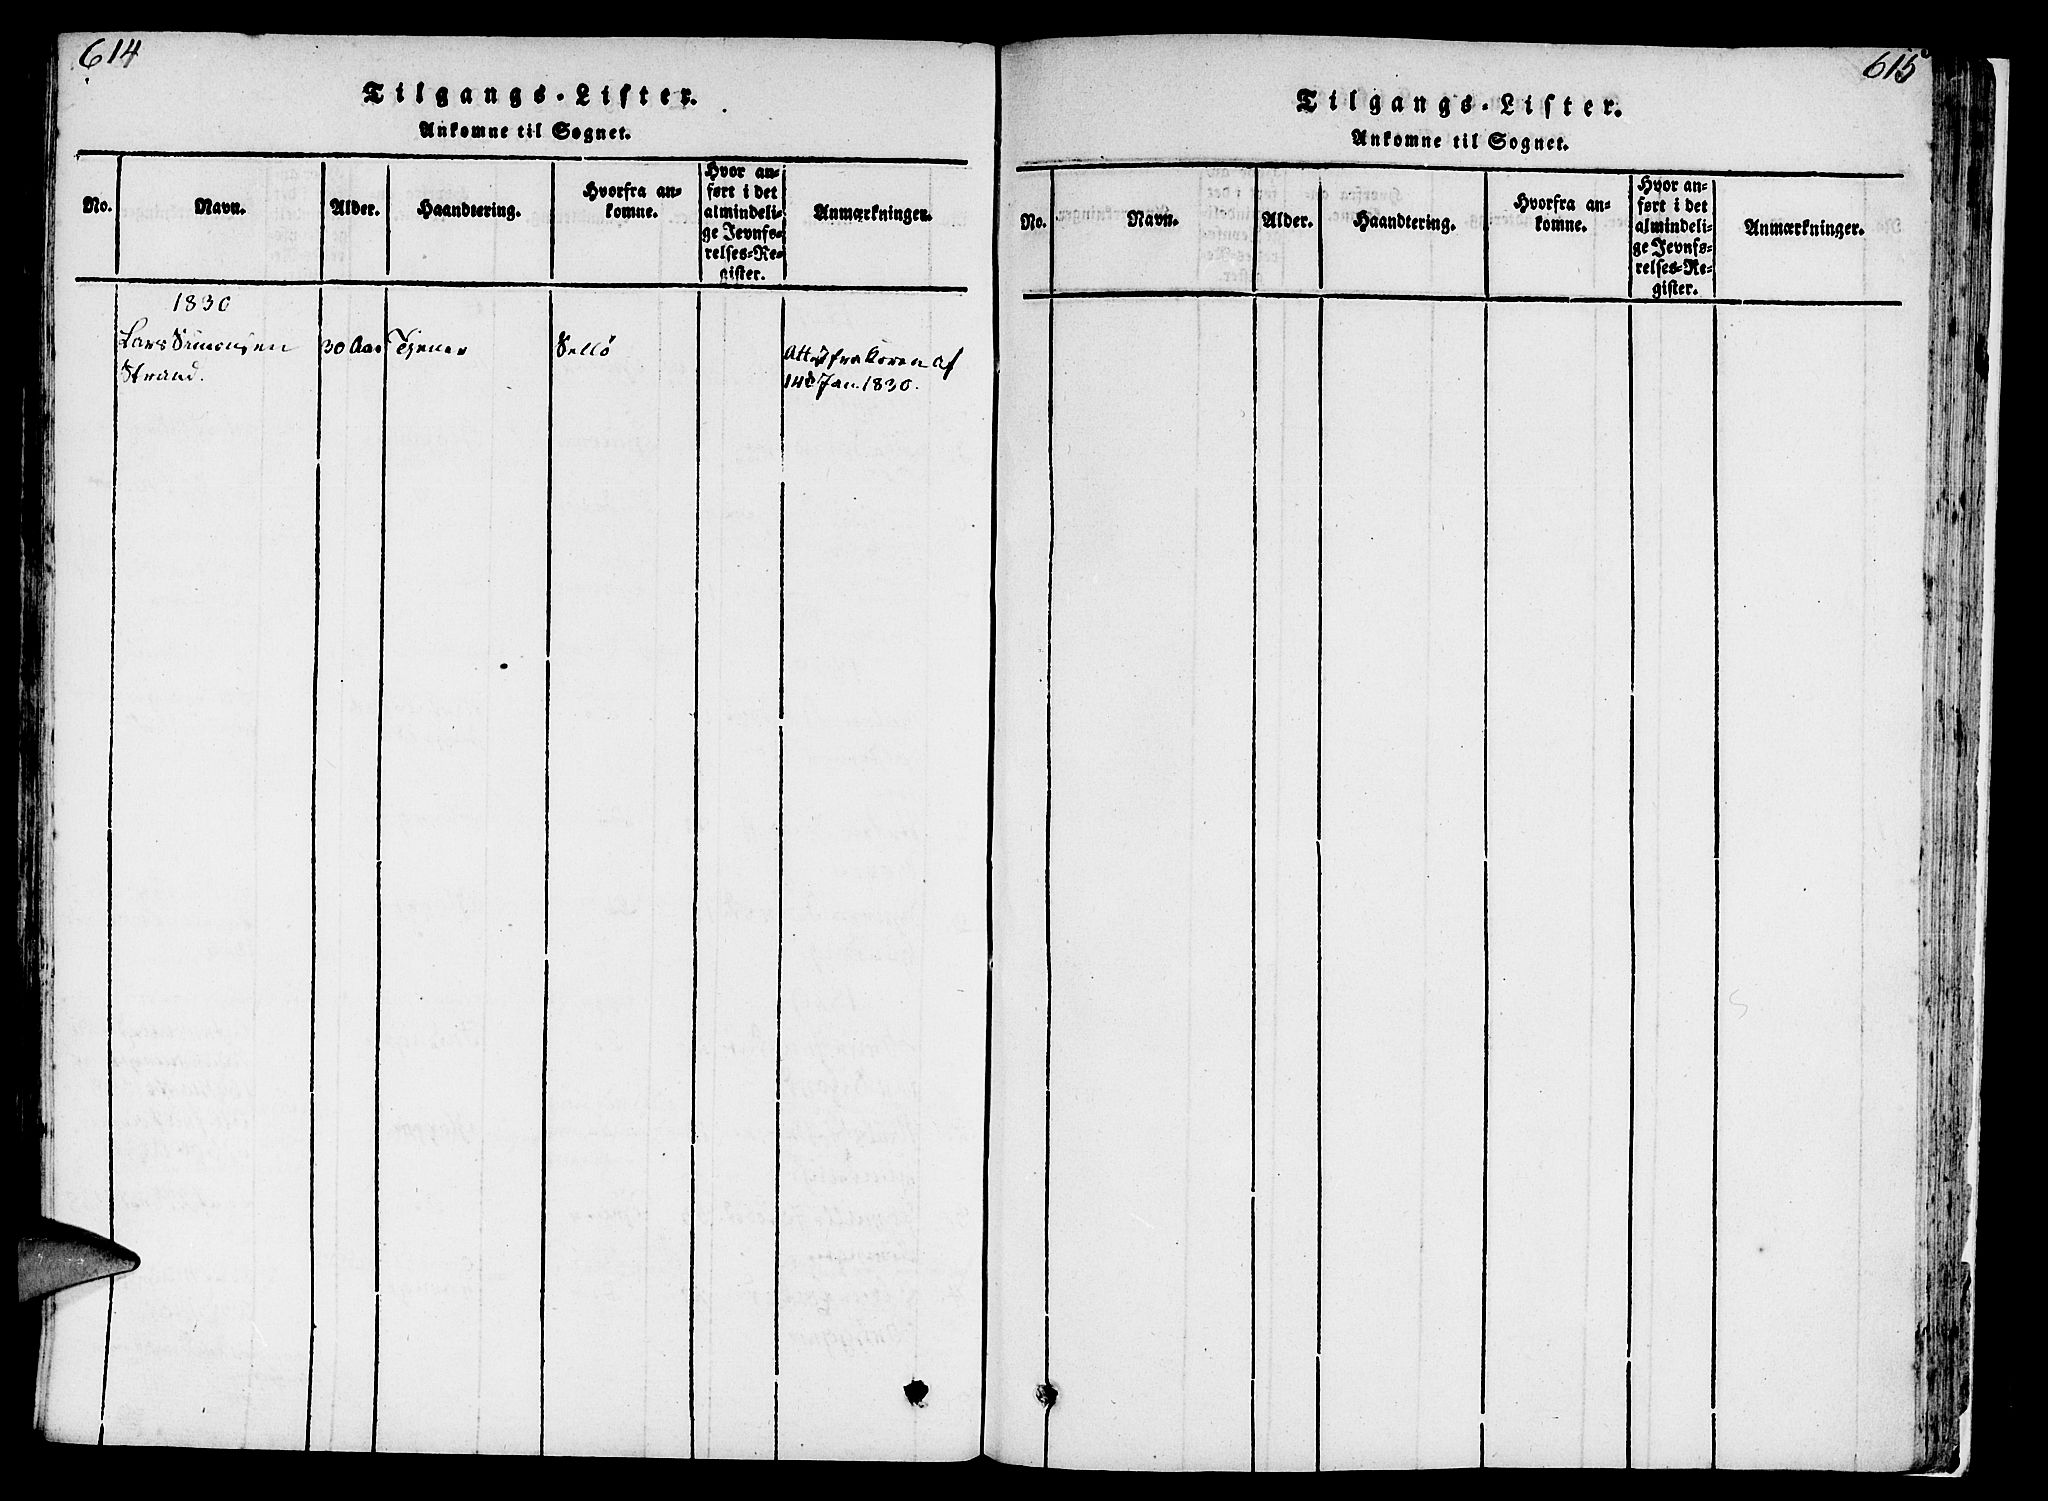 614
Tilgangs-Lister.
Ankomne til Sognet.
No.
Navn.
Alder.
Haandtering.
Hvorfra an=
komne.
Hvor an=
ført i det
almindeli=
ge Jevnfø=
relses=Re=
gister.
Anmærkninger.
1830
Lars Simonsen
Strand.
30 Aar
Tjener
Sellö
Attest fra af
14de Jan. 1830.
615
Tilgangs-Lister.
Ankomne til Sognet.
No.
Navn.
Alder.
Haandtering.
Hvorfra an=
komne.
Hvor an=
ført i det
almindeli=
ge Jevnfø=
relses=Re=
gister.
Anmærkninger.